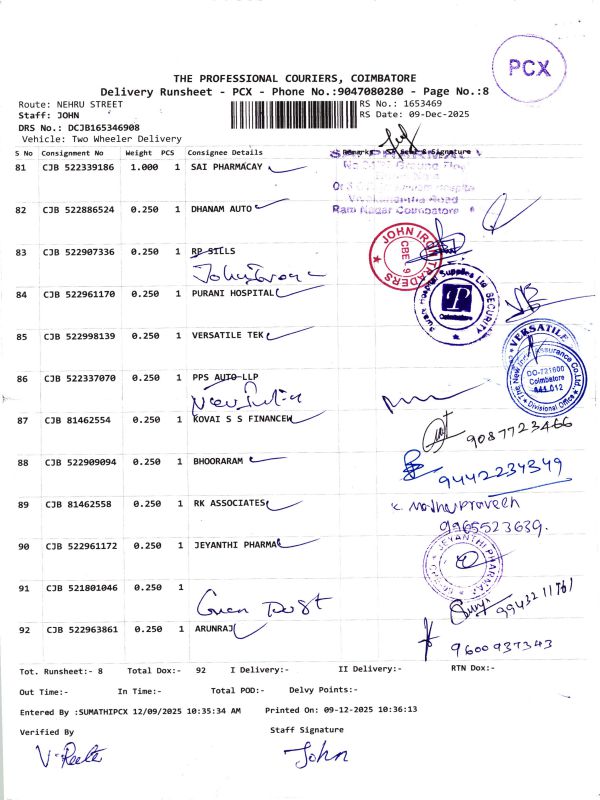 PCX
THE PROFESSIONAL COURIERS, COIMBATORE
Delivery Runsheet - PCX - Phone No.:9047080280 - Page No.:8
Route: NEHRU STREET
RS No.: 1653469
Staff: JOHN
RS Date: 09-Dec-2025
DRS No.: DCJB165346908
Vehicle: Two Wheeler Delivery
S No Consignment No Weight PCS Consignee Details Remarks Seal & Signature
81 CJB 522339186 1.000 1 SAI PHARMACAY
Ram Nagar Coimbatore
82 CJB 522886524 0.250 1 DHANAM AUTO
83 CJB 522907336 0.250 1 RP SILLS
JOHN IRON TRADERS
CBE 9
84 CJB 522961170 0.250 1 PURANI HOSPITAL
Hospital Supplies Ltd SECURITY
Coimbatore
85 CJB 522998139 0.250 1 VERSATILE TEK
VERSATILE
86 CJB 522337070 0.250 1 PPS AUTO LLP
New India
The New India Assurance Co.Ltd.
DO-721600
Coimbatore
641 012
Divisional Office
87 CJB 81462554 0.250 1 KOVAI S S FINANCEW
9087723466
88 CJB 522909094 0.250 1 BHOORARAM
9442234349
89 CJB 81462558 0.250 1 RK ASSOCIATES
9965523639.
90 CJB 522961172 0.250 1 JEYANTHI PHARMA
JEYANTHI PHARMA
91 CJB 521801046 0.250 1
9943211761
92 CJB 522963861 0.250 1 ARUNRAJ
9600937343
Tot. Runsheet:- 8 Total Dox:- 92 I Delivery:- II Delivery:- RTN Dox:-
Out Time:- In Time:- Total POD:- Delvy Points:-
Entered By :SUMATHIPCX 12/09/2025 10:35:34 AM Printed On: 09-12-2025 10:36:13
Verified By Staff Signature
John